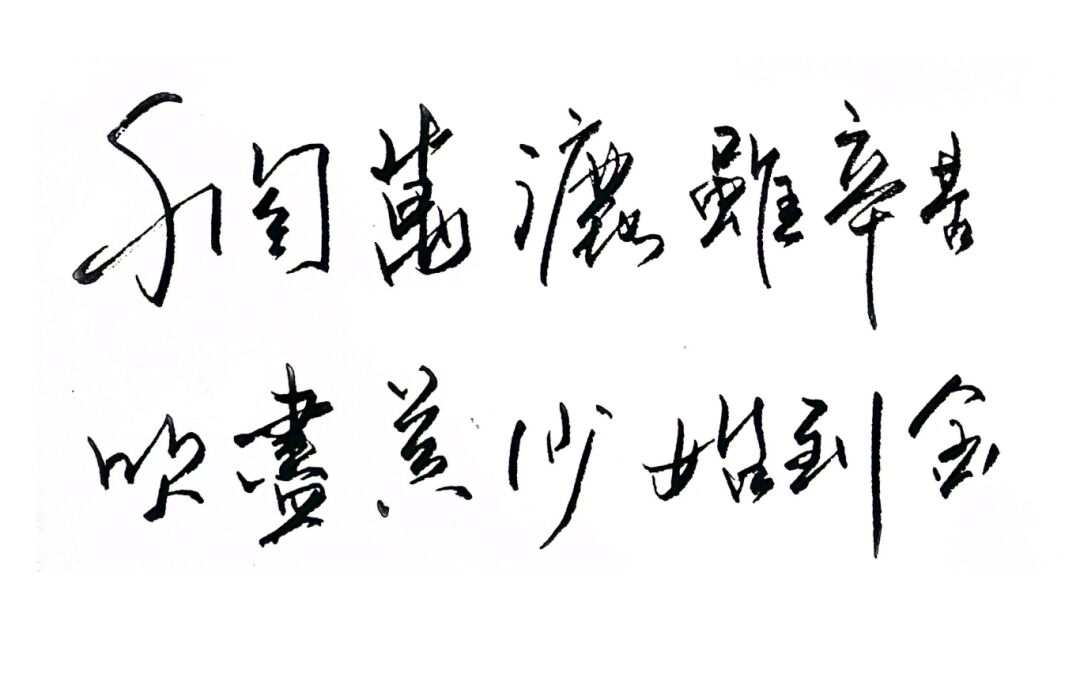 千淘萬漉雖辛苦
吹盡黃沙始到金